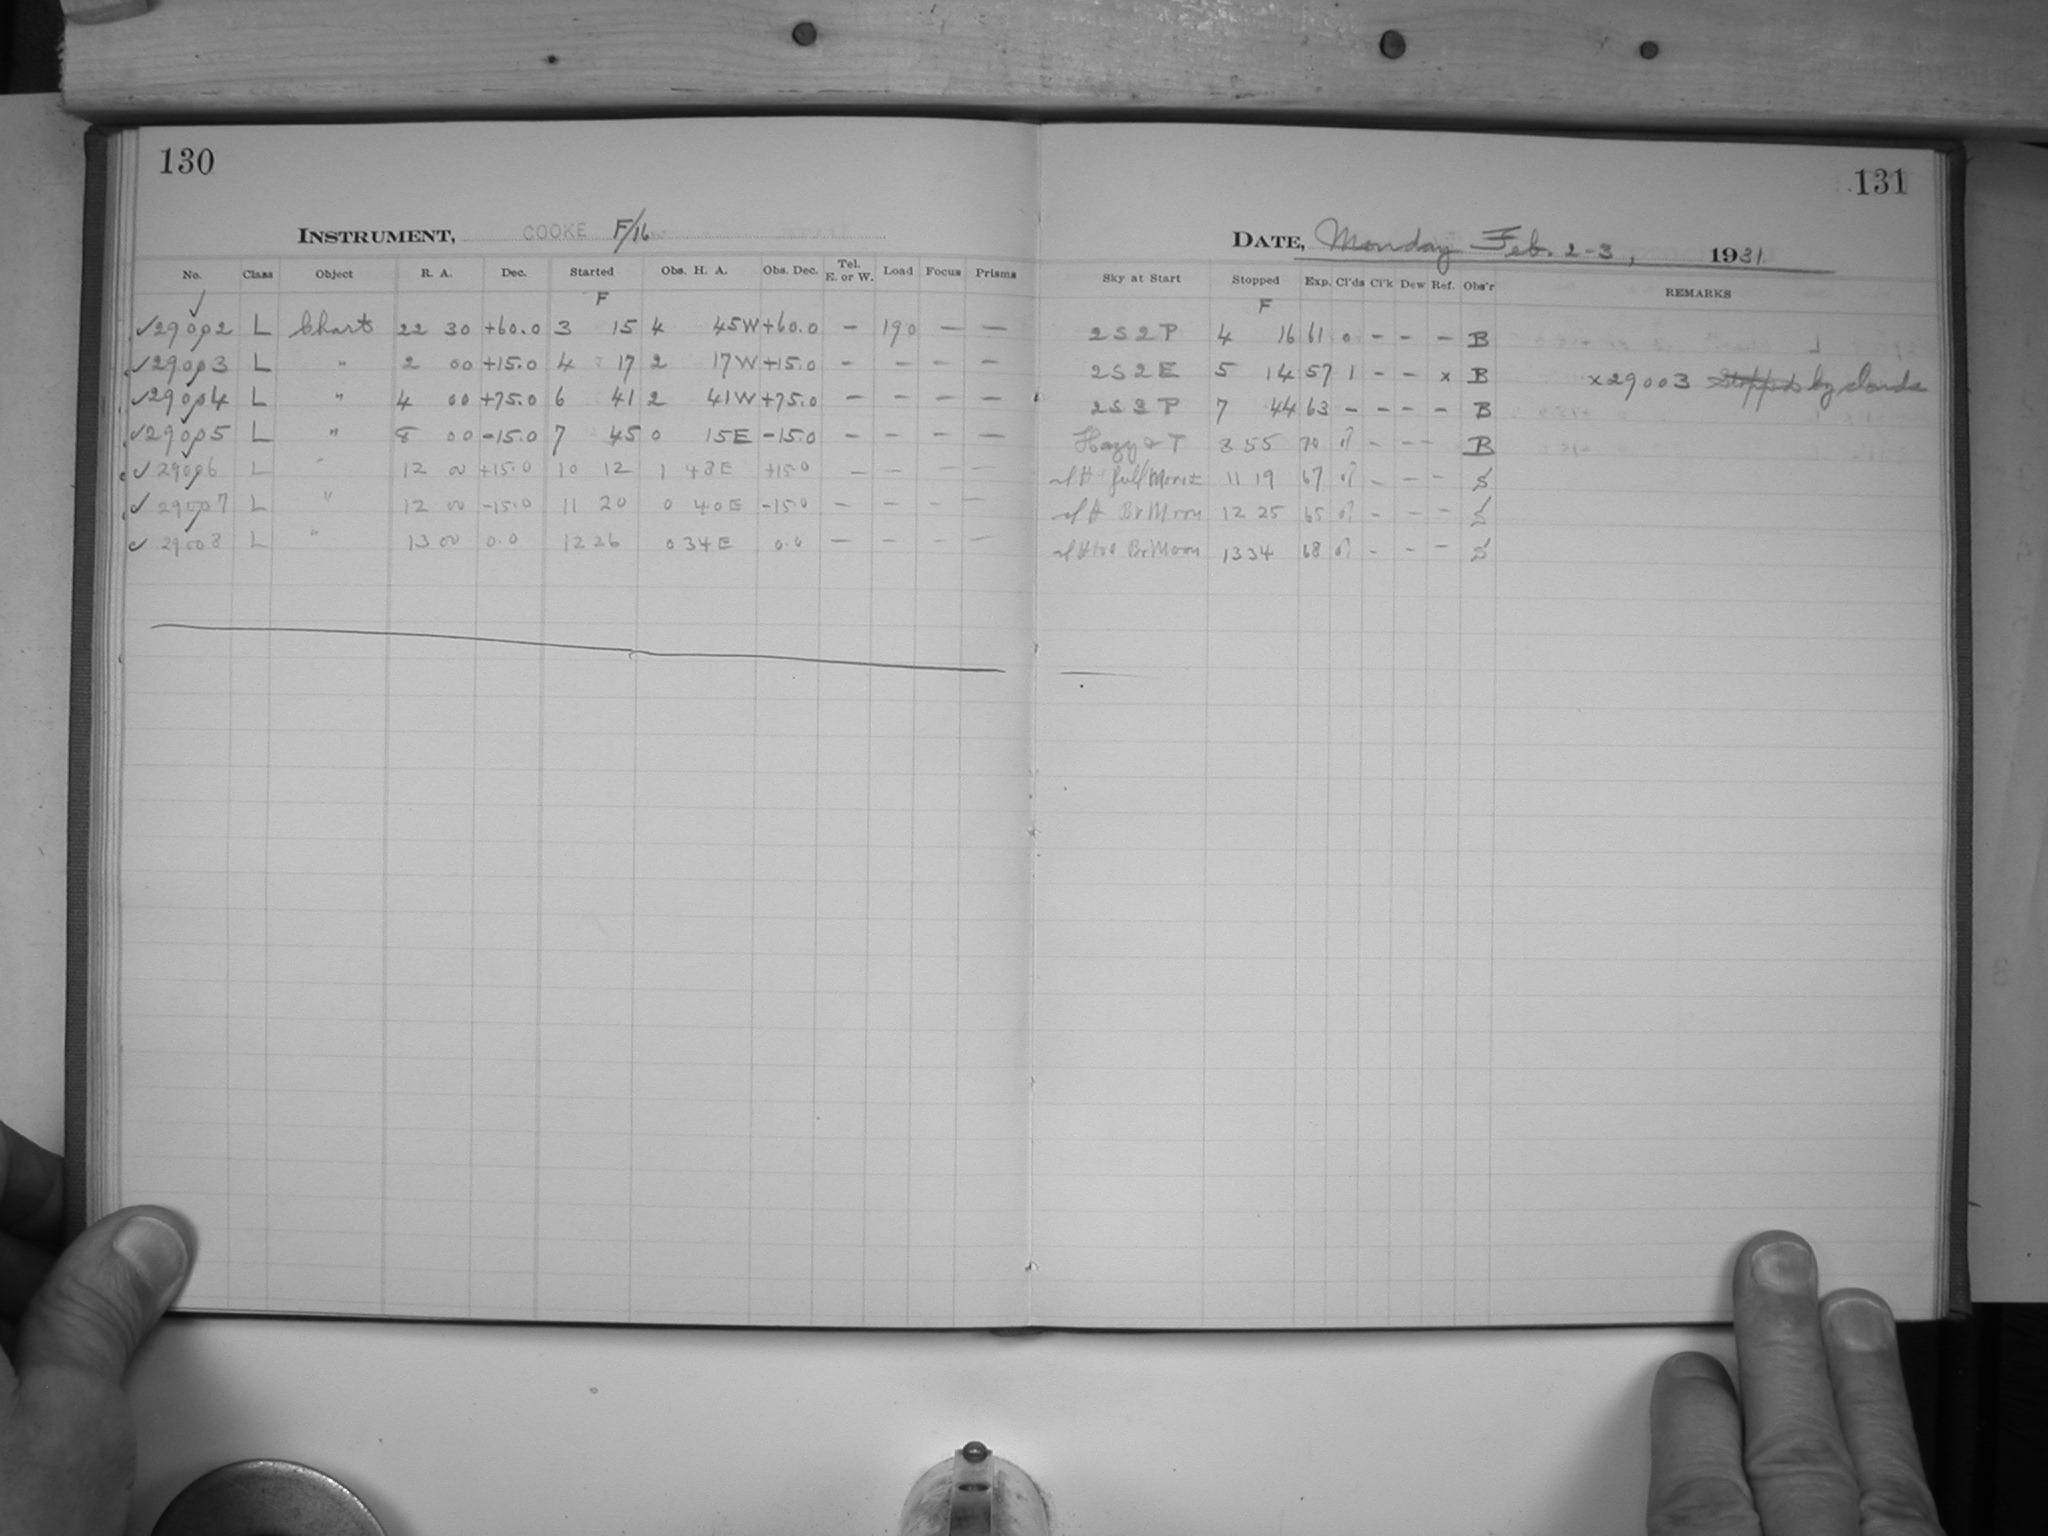 130
INSTRUMENT, COOKE F/16
No. Class Object R. A. Dec. Started Obs. H. A. Obs. Dec. Tel. E. or W. Load Focus Prisms
F
✓29002 L Chart 22 30 +60.0 3 15 4 45W +60.0 — 190 — —
✓29003 L " 2 00 +15.0 4 17 2 17W +15.0 — — — —
✓29004 L " 4 00 +75.0 6 41 2 41W +75.0 — — — —
✓29005 L " 8 00 -15.0 7 45 0 15E -15.0 — — — —
✓29006 L " 12 00 +15.0 10 12 1 48E +15.0 — — — —
✓29007 L " 12 00 -15.0 11 20 0 40E -15.0 — — — —
✓29008 L " 13 00 0.0 12 26 0 34E 0.0 — — — —
131
DATE, Monday Feb. 2-3, 1931
Sky at Start Stopped Exp. Cl'ds Cl'k Dew Ref. Obs'r REMARKS
F
2S2P 4 16 61 0 - - - B
2S2E 5 14 57 1 - - x B x29003 Stopped by clouds
2S3P 7 44 63 - - - - B
Hazy & T 8 55 70 - - - B
Full Moon 11 19 67 - - - S
Br Moon 12 25 65 - - - S
Br Moon 13 34 68 - - - S